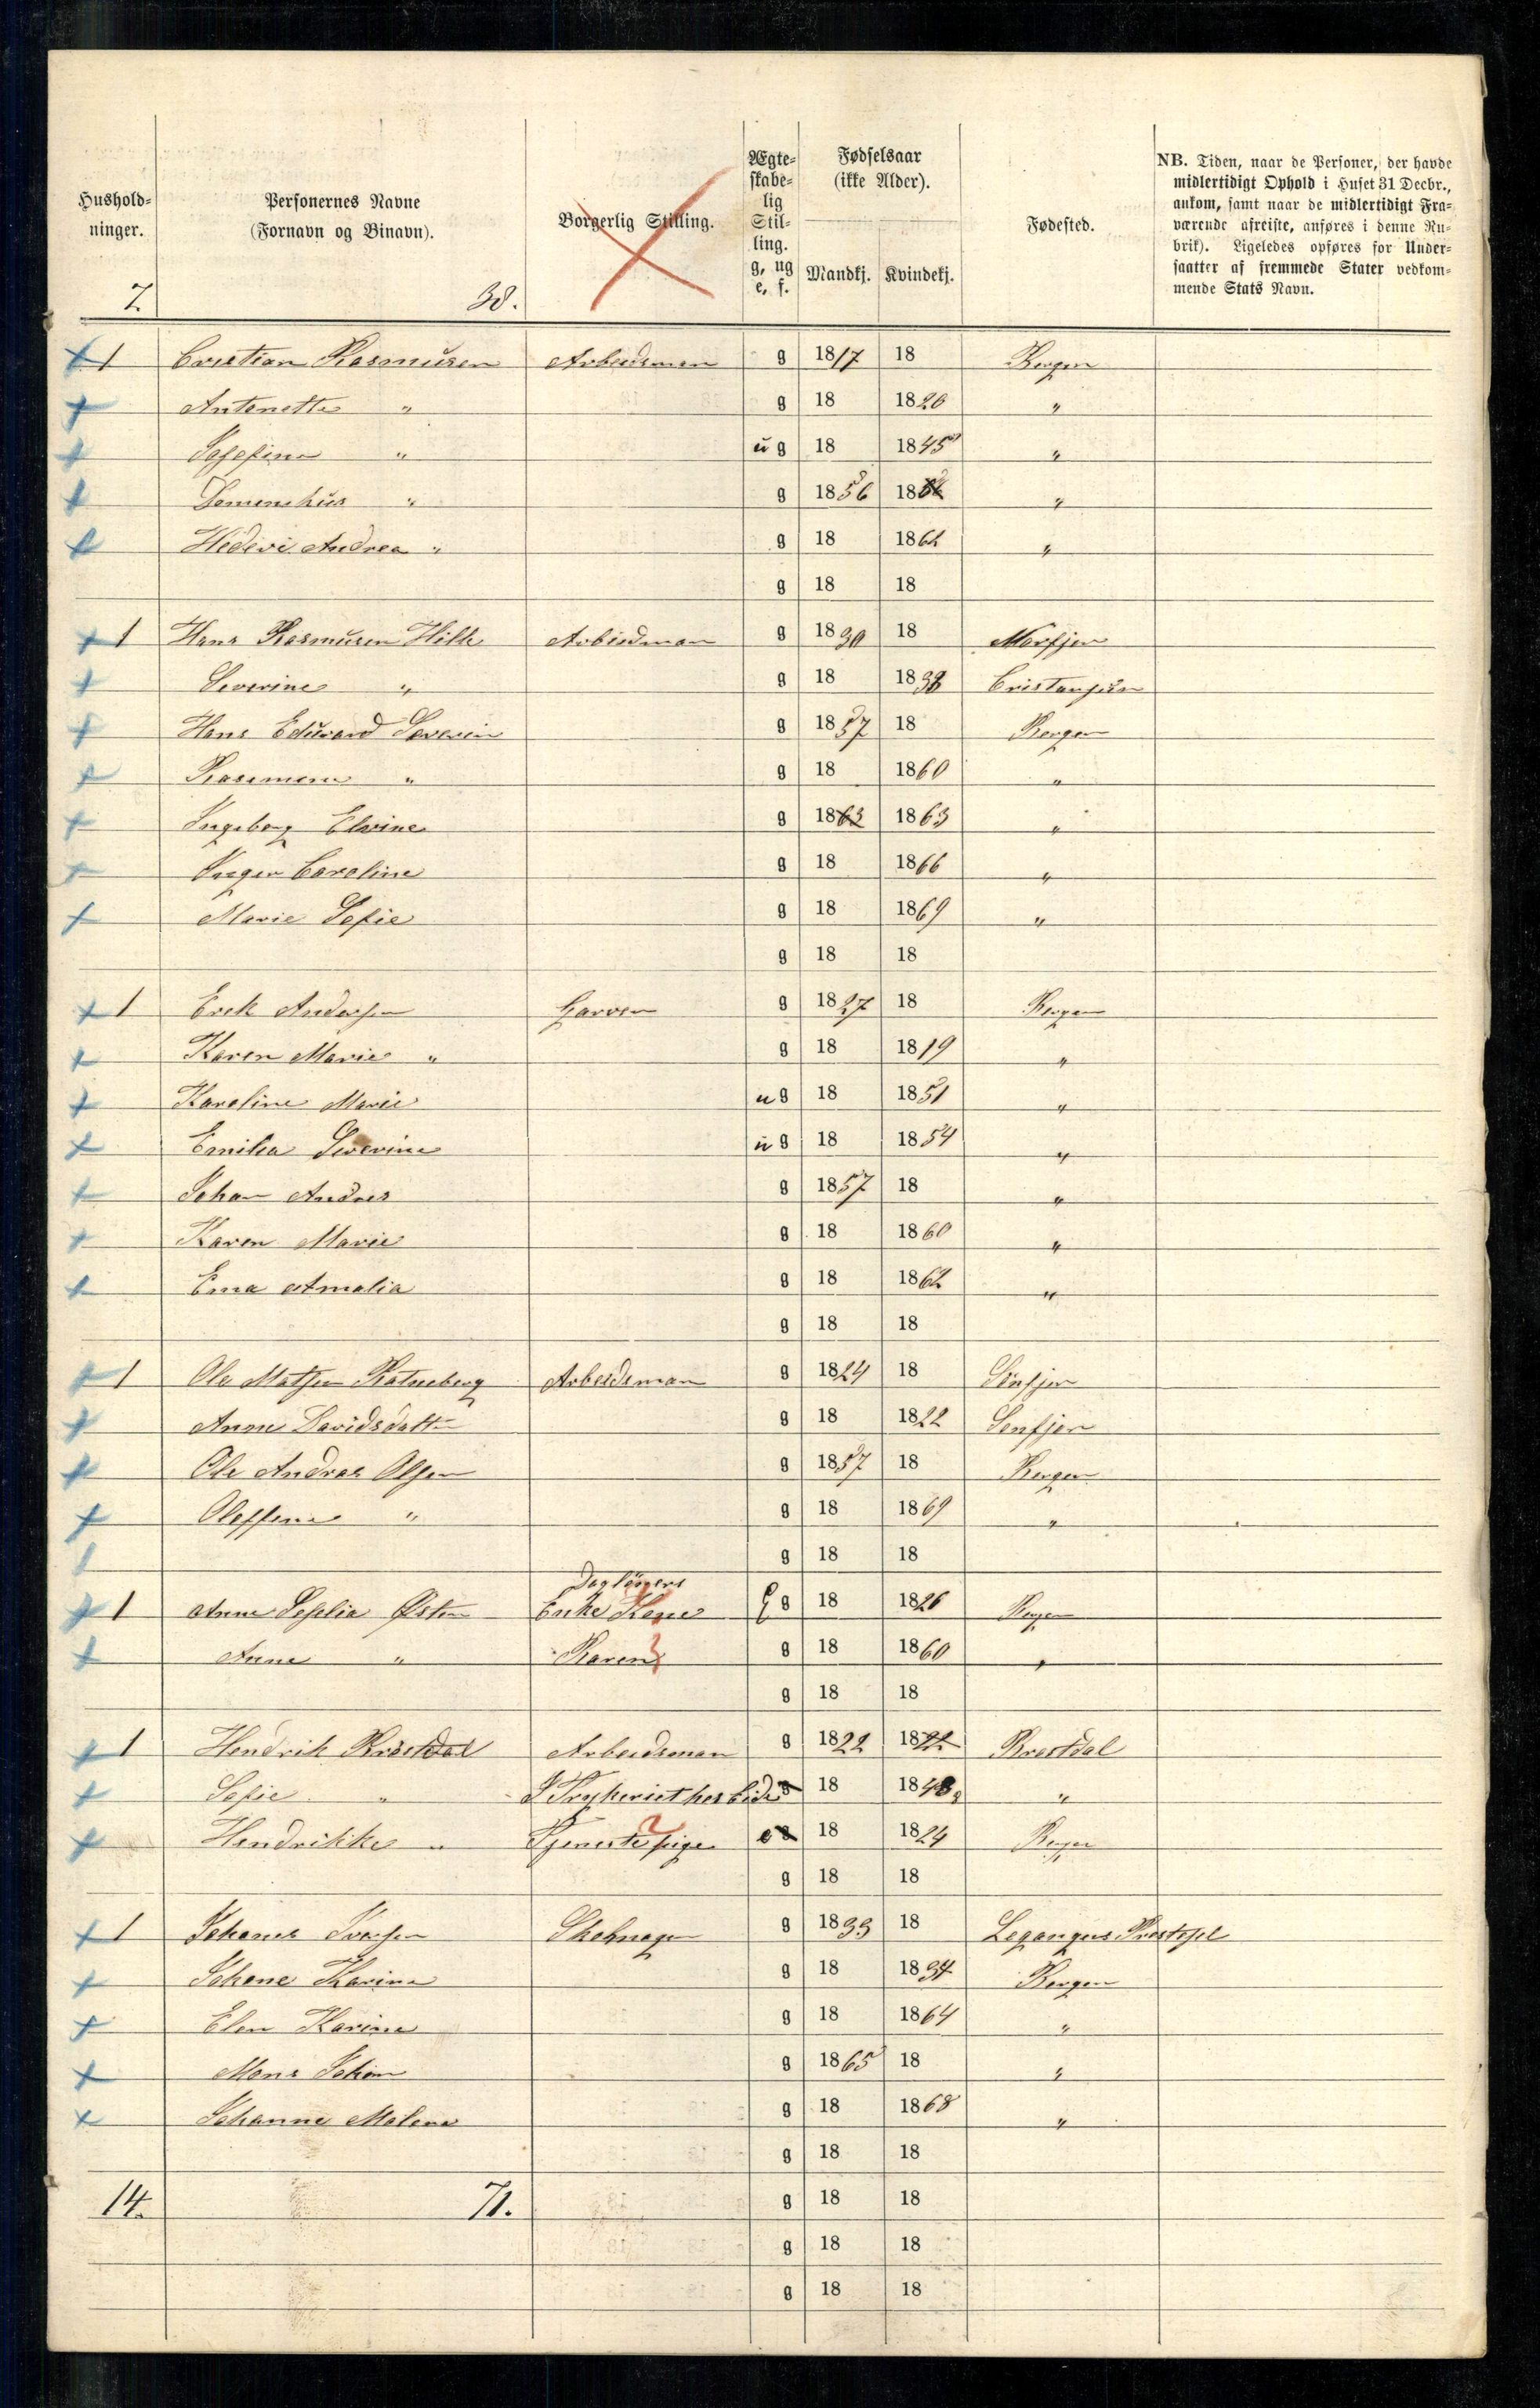 Hushold-
ninger.
Personernes Navne
(Fornavn og Binavn).
Borgerlig Stilling.
Ægte-
skabe-
lig
Stil-
ling.
g, ug
e, f.
Fødselsaar
(ikke Alder).
Mandkj. Kvindekj.
Fødested.
NB. Tiden, naar de Personer, der havde
midlertidigt Ophold i Huset 31 Decbr.,
ankom, samt naar de midlertidigt Fra-
værende afreiste, anføres i denne Ru-
brik). Ligeledes opføres for Under-
saatter af fremmede Stater vedkom-
mende Stats Navn.
7. 38.
1 Cristian Rasmüsen Arbeidsman g 1817 18 Bergen
Antonette " g 18 1820 "
Josefine " ü g 18 1845 "
" g 1856 18 "
Hedevi Andrea " g 18 1862 "
g 18 18
1 Hans Rasmüsen Hille Arbeidman g 1830 18
Severine " g 18 1838 Cristansün
Hans Edüvard Severin g 1857 18 Bergen
" g 18 1860 "
Ingeborg Elvine g 1863 1863 "
Inger Caroline g 18 1866 "
Marie Sofie g 18 1869 "
g 18 18
1 Erek Andersen Garver g 1827 18 Bergen
Karen Marie " g 18 1819 "
Karoline Marie u g 18 1851 "
Emilia Severine ü g 18 1854 "
Johan Andres g 1857 18 "
Karen Marie g 18 1860 "
Ema Amalia g 18 1862 "
g 18 18
1 Ole Matsen Arbeidsman g 1824 18 Sönfjor
Anne Davidsdatter g 18 1822 Sonfjor
Ole Andras Olsen g 1857 18 Bergen
" g 18 1869 "
g 18 18
Daglöners
1 Anne Østen Enke Kone E g 18 1826 Bergen
Anne " Baren g 18 1860 "
g 18 18
1 Hendrik Arbeidsman g 1822 1822 Brestdal
Sofie " g 18 1848 "
Hendrikke " Tjenestepige e g 18 1824 Bergen
g 18 18
1 Johanes Iversen Skomager g 1833 18 Legangers Prestejel
Johane Karina g 18 1834 Bergen
Elen Karine g 18 1864 "
Mons Johan g 1865 18 "
Johanne Malena g 18 1868 "
g 18 18
14. 71. g 18 18
g 18 18
g 18 18